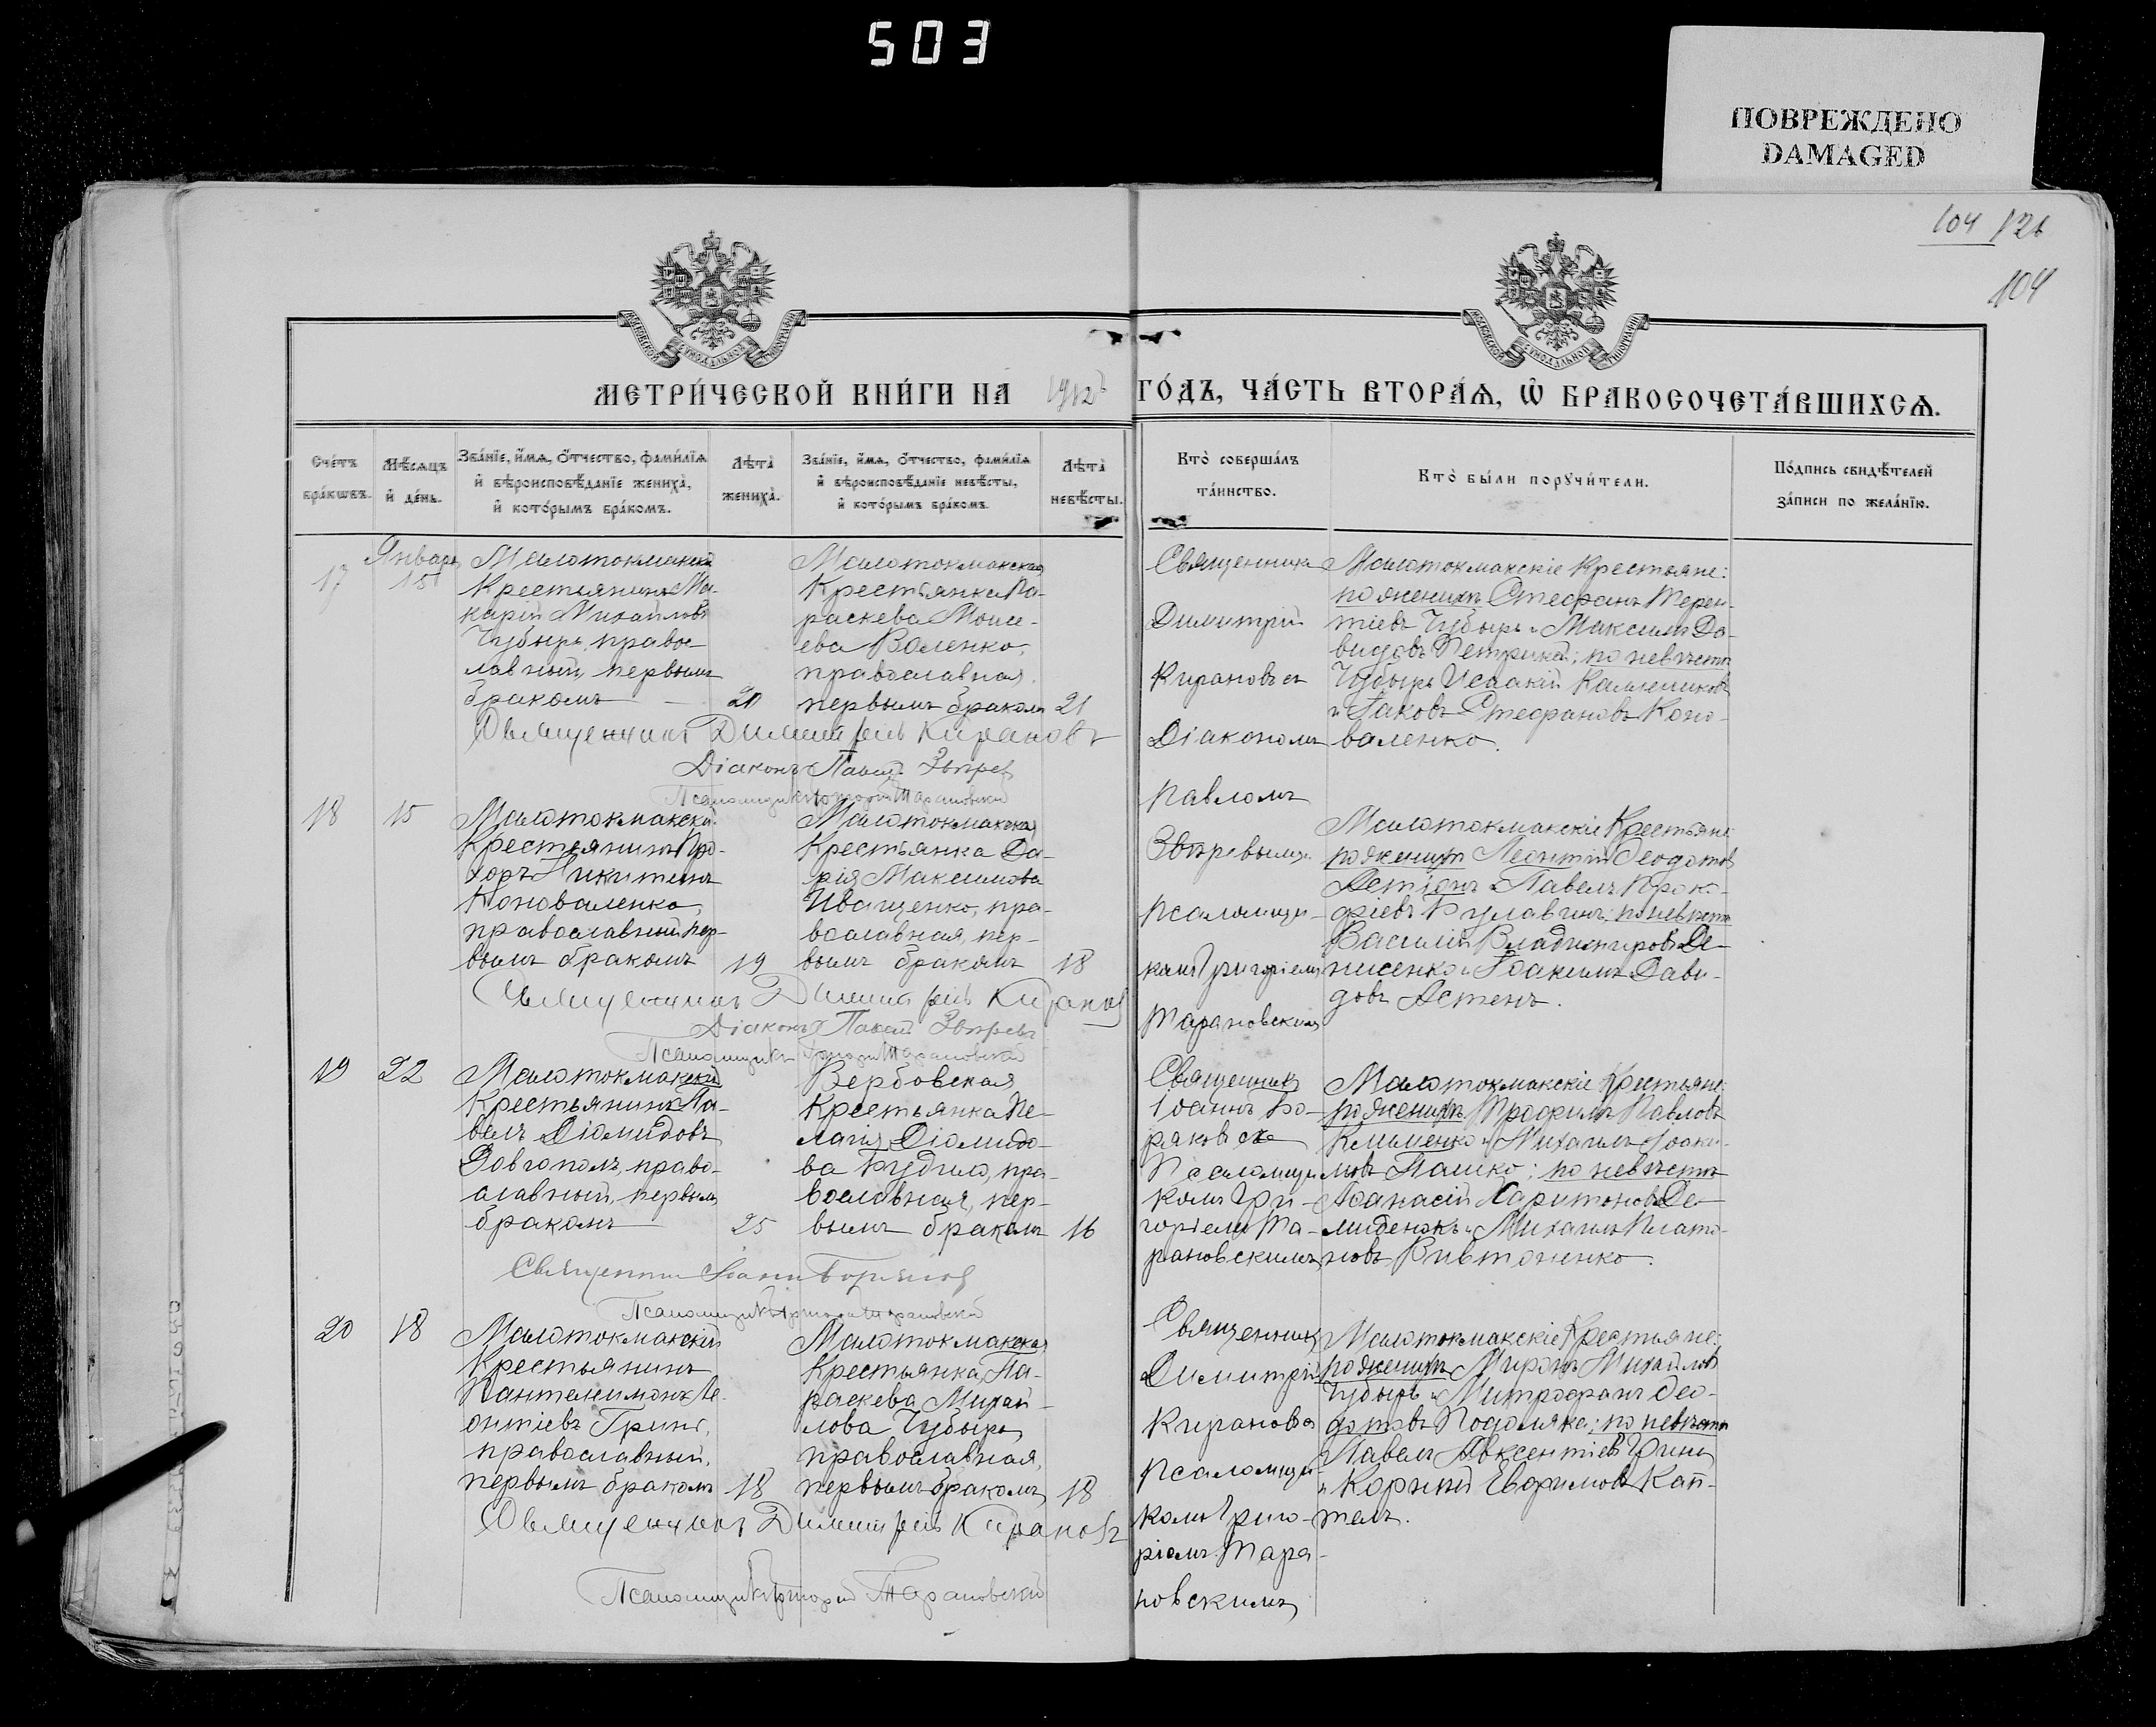 503
ПОВРЕЖДЕНО
DAMAGED
104 126
104
МЕТРИ́ЧЕСКОЙ КНИ́ГИ НА 1912й ГО́ДЪ, ЧА́СТЬ ВТОРА́Ѧ, Ѽ БРАКОСОЧЕТА́ВШИХСѦ.
Сче́тъ
бра́кѡвъ.
Мѣ́сѧцъ
и҆ де́нь.
Зва́нїе, и҆́мѧ, ѻ҆́тчество, фами́лїѧ
и҆ вѣроисповѣ́данїе жениха̀,
и҆ кото́рымъ бра́комъ.
Лѣта̀
жениха̀.
Зва́нїе, и҆́мѧ, ѻ҆́тчество, фами́лїѧ
и҆ вѣроисповѣ́данїе невѣ́сты,
и҆ кото́рымъ бра́комъ.
Лѣта̀
невѣ́сты.
Кто̀ соверша́лъ
та́инство.
Кто̀ бы́ли порꙋчи́тели.
По́дпись свидѣ́телей
за́писи по жела́нїю.
17
Январь
15
Малотокмакскій
Крестьянинъ Ма-
карій Михайловъ
Чубырь, правос-
лавный, первымъ
бракомъ 20
Малотокмакская
Крестьянка Па-
раскева Моисе-
ева Воленко,
православная,
первымъ бракомъ 21
Священникъ
Димитрій
Кирановъ съ
Діакономъ
Павломъ
Звѣревымъ
Псаломщи-
комъ Григоріемъ
Тарановскимъ
Малотокмакскіе Крестьяне:
по женихѣ Стефанъ Терен-
тіевъ Чубырь и Максимъ Да-
видовъ Петрикей; по невѣстѣ
Чубырь Исаакій
и Іаковъ Стефановъ Коно-
валенко.
Священникъ Димитрій Кирановъ
Діаконъ Павелъ Звѣревъ
Псаломщикъ Григорій Тарановскій
18
15
Малотокмакскій
Крестьянинъ Про-
хоръ Никитинъ
Коноваленко,
православный, пер-
вымъ бракомъ 19
Малотокмакская
Крестьянка Да-
рія Максимова
Иващенко, пра-
вославная, пер-
вымъ бракомъ 18
Малотокмакскіе Крестьяне:
по женихѣ Леонтій Ѳеодотовъ
и Павелъ Проко-
фіевъ Кулавинъ; по невѣстѣ
Василій Владимировъ Де-
нисенко и Іоакимъ Дави-
довъ
Священникъ Димитрій Кирановъ
Діаконъ Павелъ Звѣревъ
Псаломщикъ Григорій Тарановскій
19
22
Малотокмакскій
Крестьянинъ Па-
велъ Діомидовъ
Довгополъ, право-
славный, первымъ
бракомъ 25
Вербовская
Крестьянка Пе-
лагія Діомидо-
ва Кудило, пра-
вославная, пер-
вымъ бракомъ 16
Священникъ
Іоаннъ Бо-
ряковъ съ
Псаломщи-
комъ Гри-
горіемъ Та-
рановскимъ
Малотокмакскіе Крестьяне:
по женихѣ Трофимъ Павловъ
Клименко и Михаилъ Іоаки-
мовъ Пашко; по невѣстѣ
Аѳанасій Харитоновъ Де-
миденко и Михаилъ Плато-
новъ Вивтоненко.
Священникъ Іоаннъ Боряковъ
Псаломщикъ Григорій Тарановскій
20
18
Малотокмакскій
Крестьянинъ
Пантелеимонъ Ле-
онтіевъ Гринь,
православный,
первымъ бракомъ 18
Малотокмакская
Крестьянка Па-
раскева Михай-
лова Чубырь,
православная,
первымъ бракомъ 18
Священникъ
Димитрій
Кирановъ съ
Псаломщи-
комъ Григо-
ріемъ Тара-
новскимъ
Малотокмакскіе Крестьяне:
по женихѣ Миронъ Михайловъ
Чубырь и Митрофанъ Ѳео-
дотовъ Подоляка; по невѣстѣ
Павелъ Авксентіевъ Гринь
и Корнилій Евфимовъ Кап-
телъ.
Священникъ Димитрій Кирановъ
Псаломщикъ Григорій Тарановскій